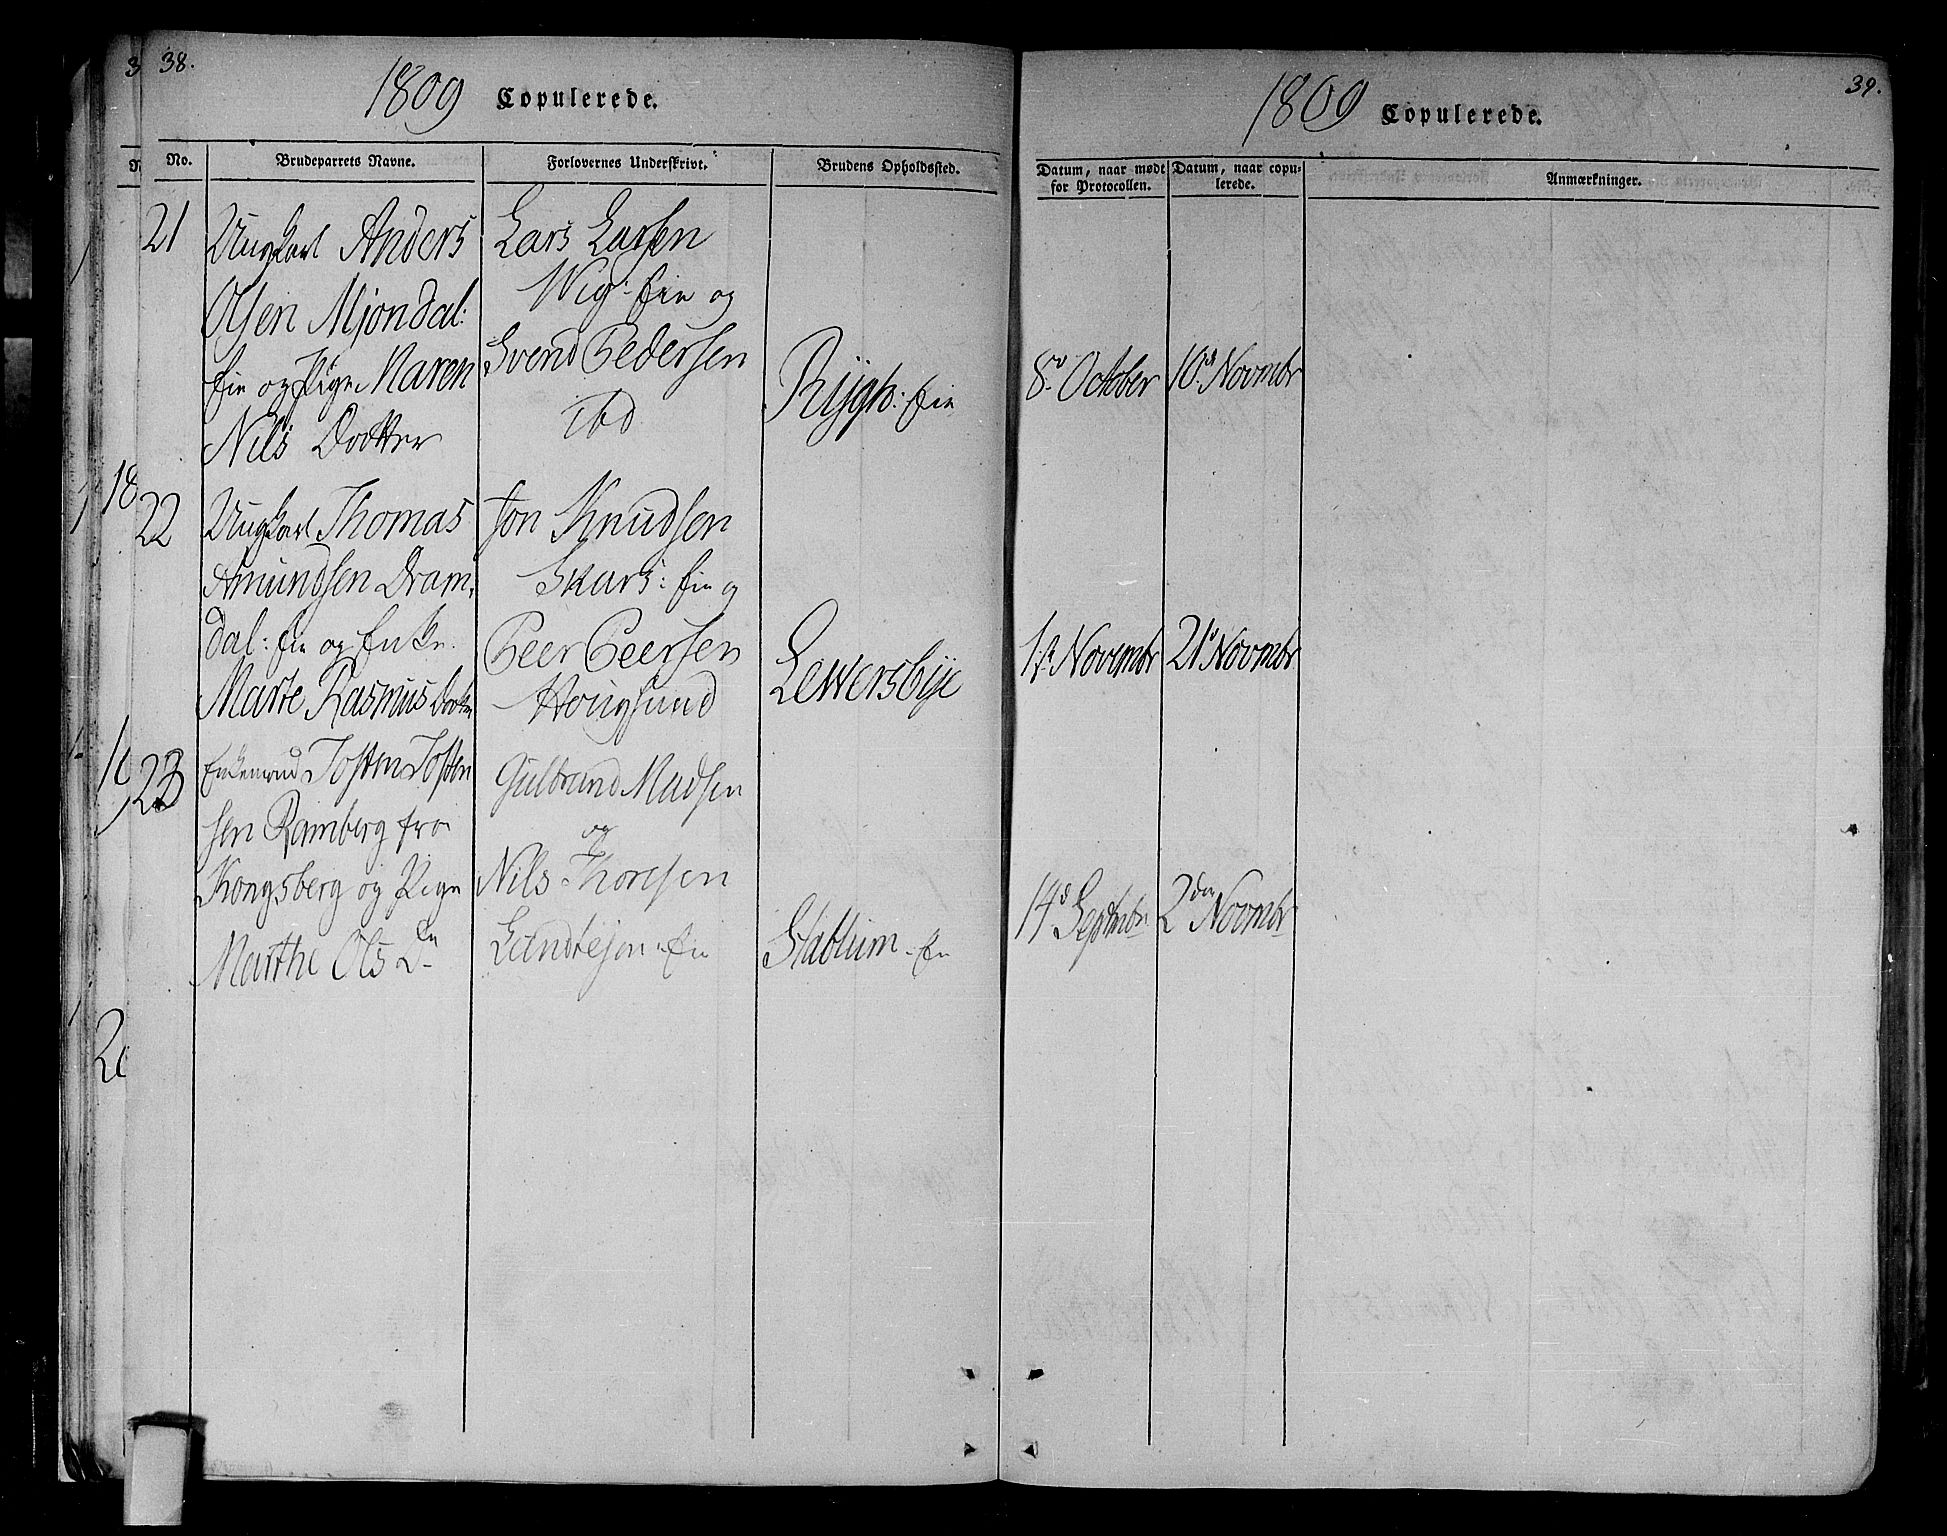 38.
1809 Copulerede.
No.
Brudeparrets Navne.
Forlovernes Underskrivt.
Brudens Opholdssted.
21
Ungkarl Anders
Olsen Mjøndal:
eie og Pige Maren
Nils Dotter
Lars Larsen
Wig: eie og
Svend Pedersen
ibd
Rijgh: eie
22
Ungkarl Thomas
Amundsen Dram,
dal: eie og Enke
Marte Rasmus Dotter
Jon Knudsen
Skars: eie og
Peer Peersen
Hougsund
Lewersbÿe
23
Enkemand Josten Josten
sen Ramberg fra
Kongsberg og Pige
Marthe Ols Dn
Gulbrand Madsen
og
Nils Thoresen
Sandtejen eie
Stablum eie
39.
1809 Copulerede.
Datum, naar mødt
for Protocollen.
Datum, naar copu-
lerede.
Anmærkninger.
8d October
10d Novmbr
1ste Novembr
21d Novmbr
14d Septmbr
2den Novmbr
18
19